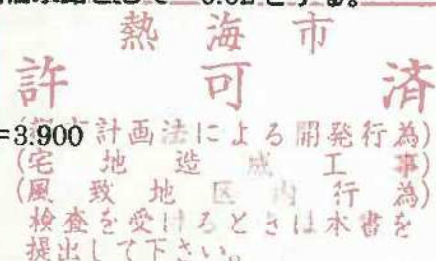 熱海市
許可済
=3.900
計画法による開発行為)
(宅地造成工事)
(風致地区内行為)
検査を受けるときは本書を
提出して下さい。